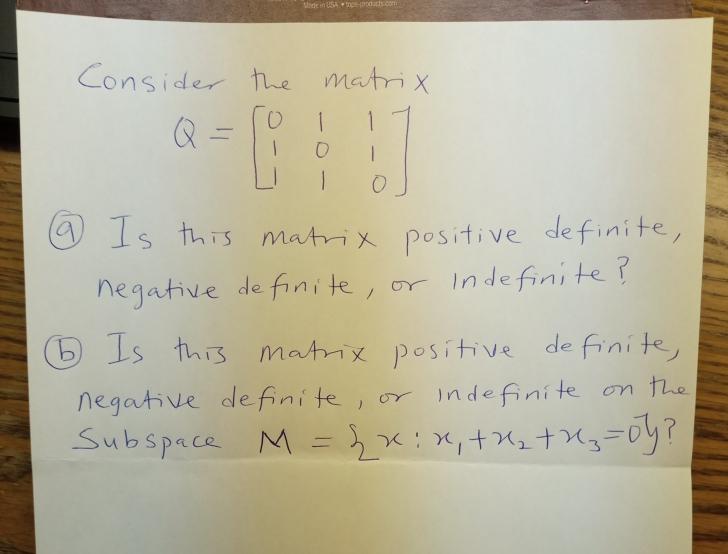 Made in USA • tops-products.com
Consider the matrix
Q = [0 1 1
1 0 1
1 1 0]
(a) Is this matrix positive definite,
negative definite, or indefinite?
(b) Is this matrix positive definite,
negative definite, or indefinite on the
Subspace M = {x : x₁+x₂+x₃=0}?